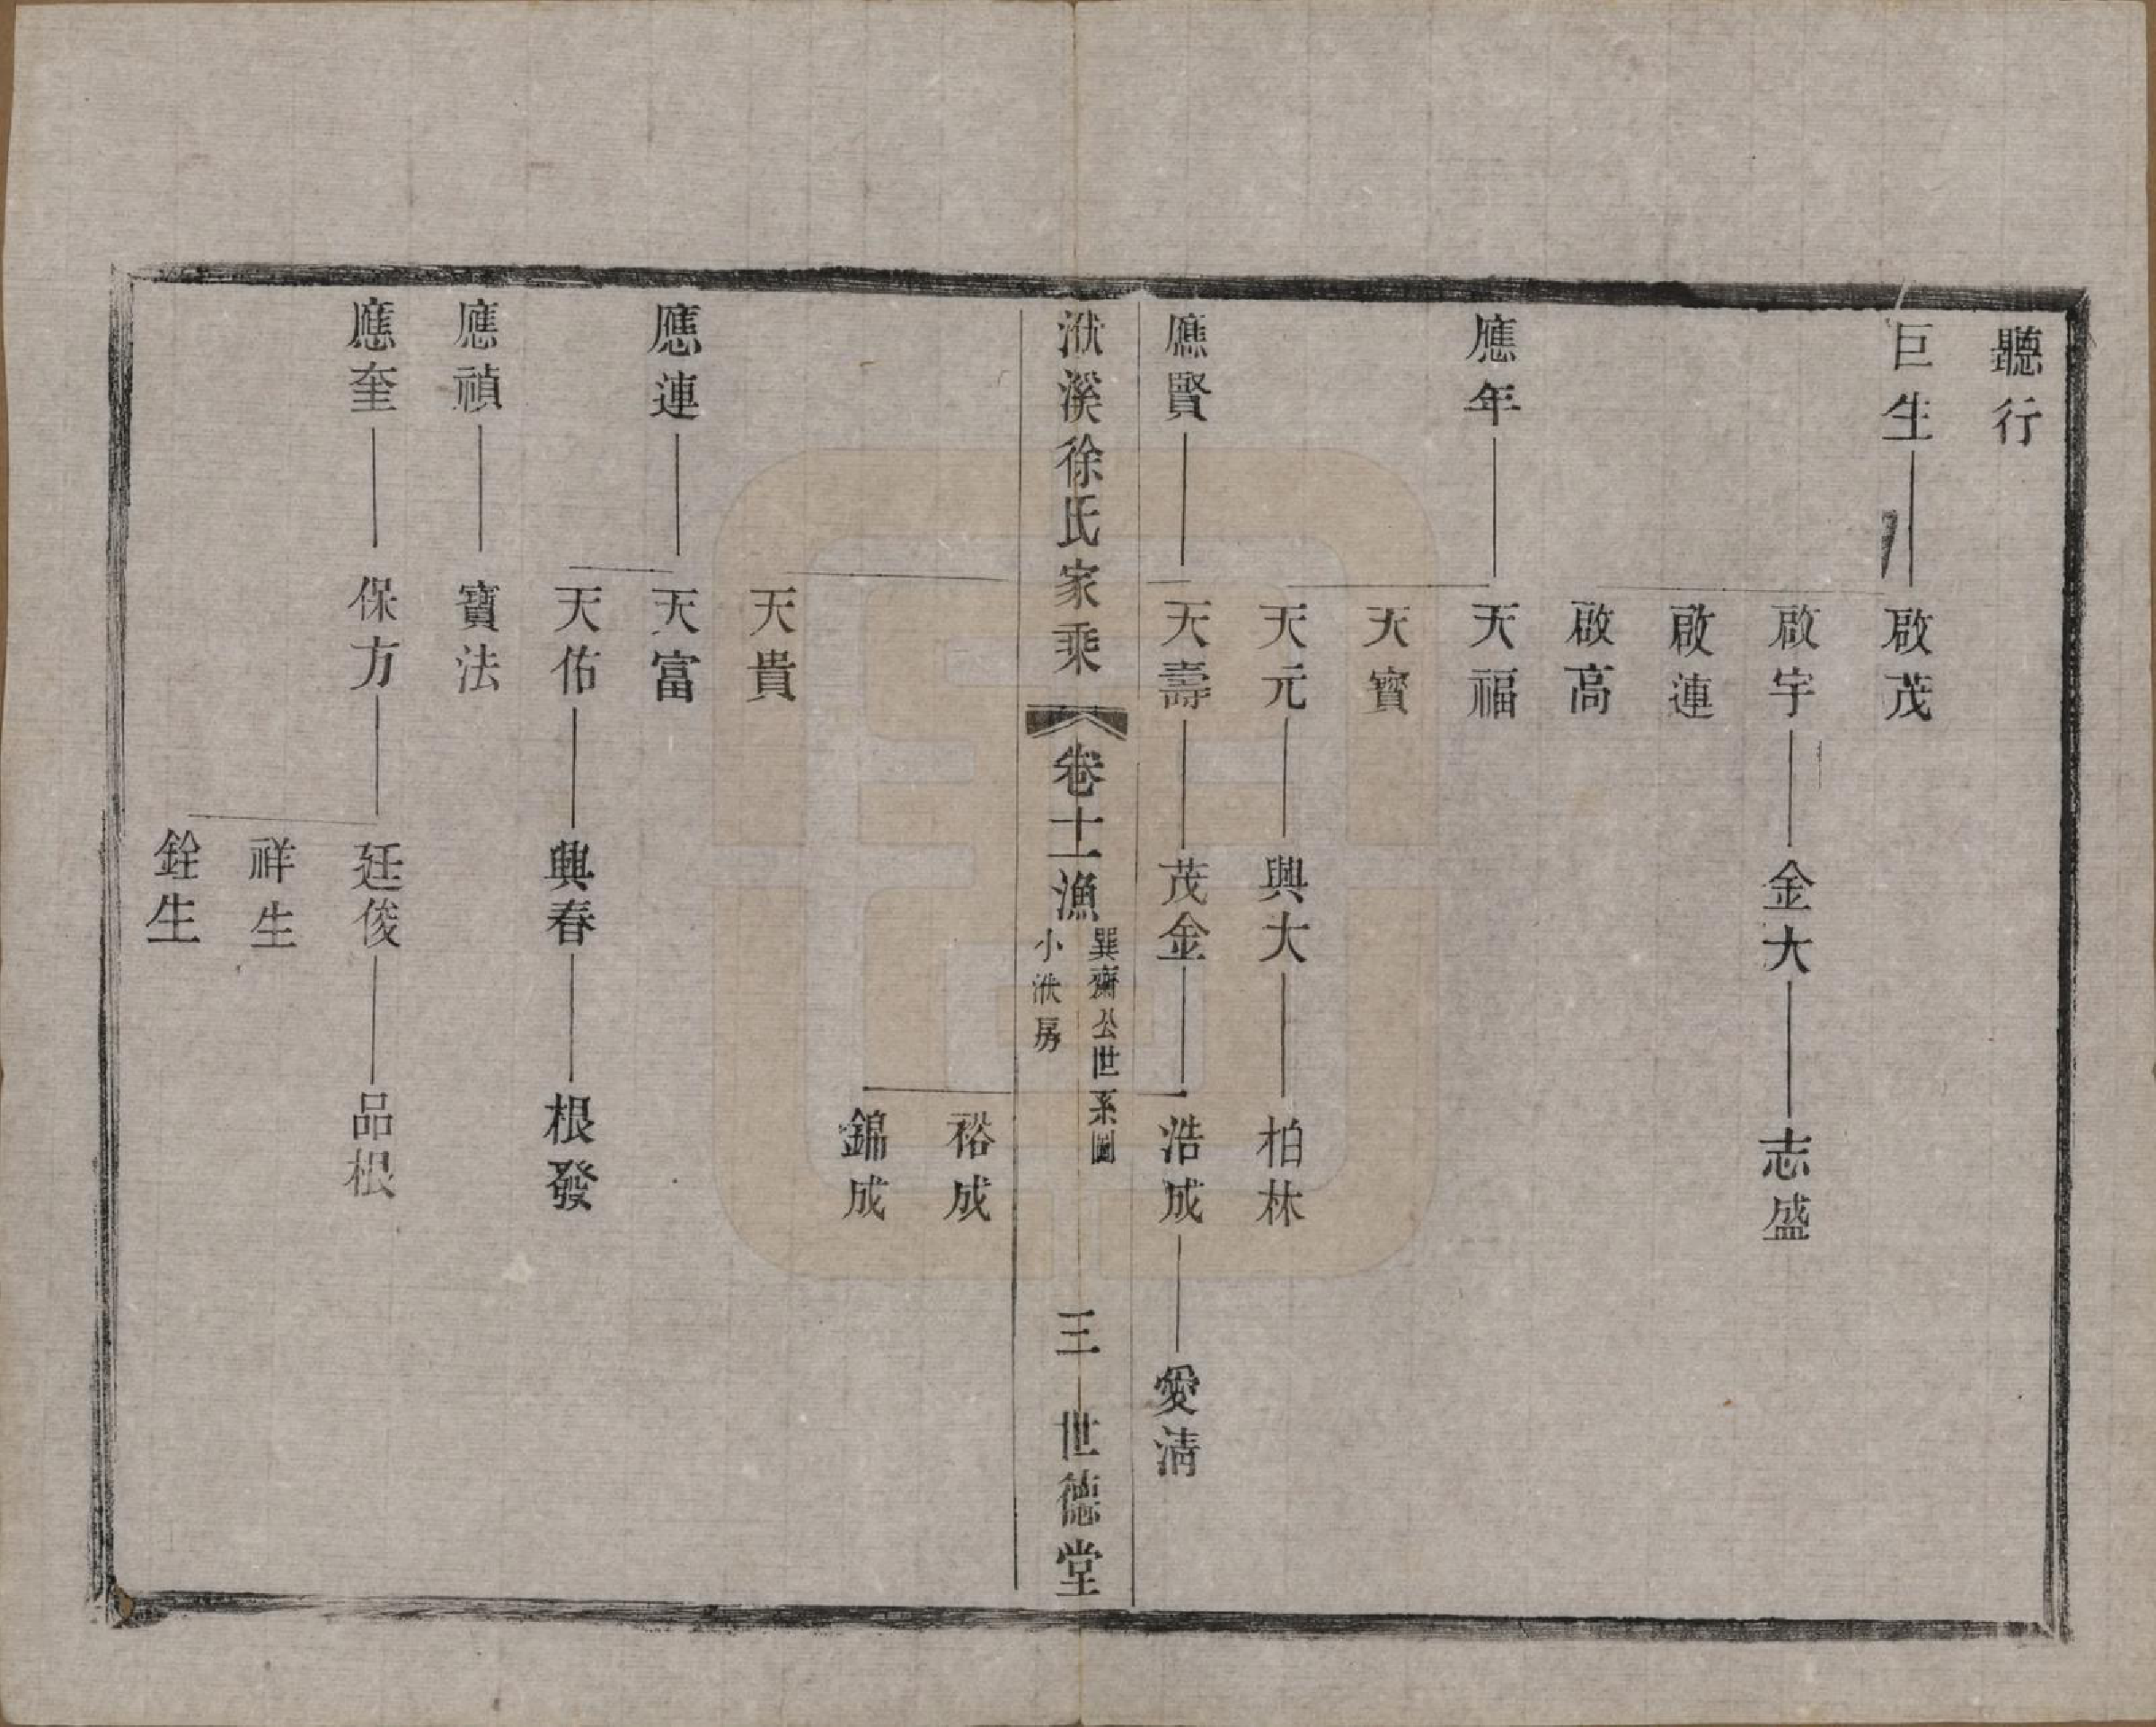 聽行
巨生 啟茂
啟宇 金大 志盛
啟連
啟高
應年 天福
天寶
天元 興大 柏林
應賢 天壽 茂金 浩成 愛清
洑溪徐氏家乘 卷十一漁 巽齋公世系圖 小洑房 三 世德堂
裕成
錦成
天貴
應連 天富
天佑 興春 根發
應禎 寶法
應奎 保方 廷俊 品根
祥生
銓生